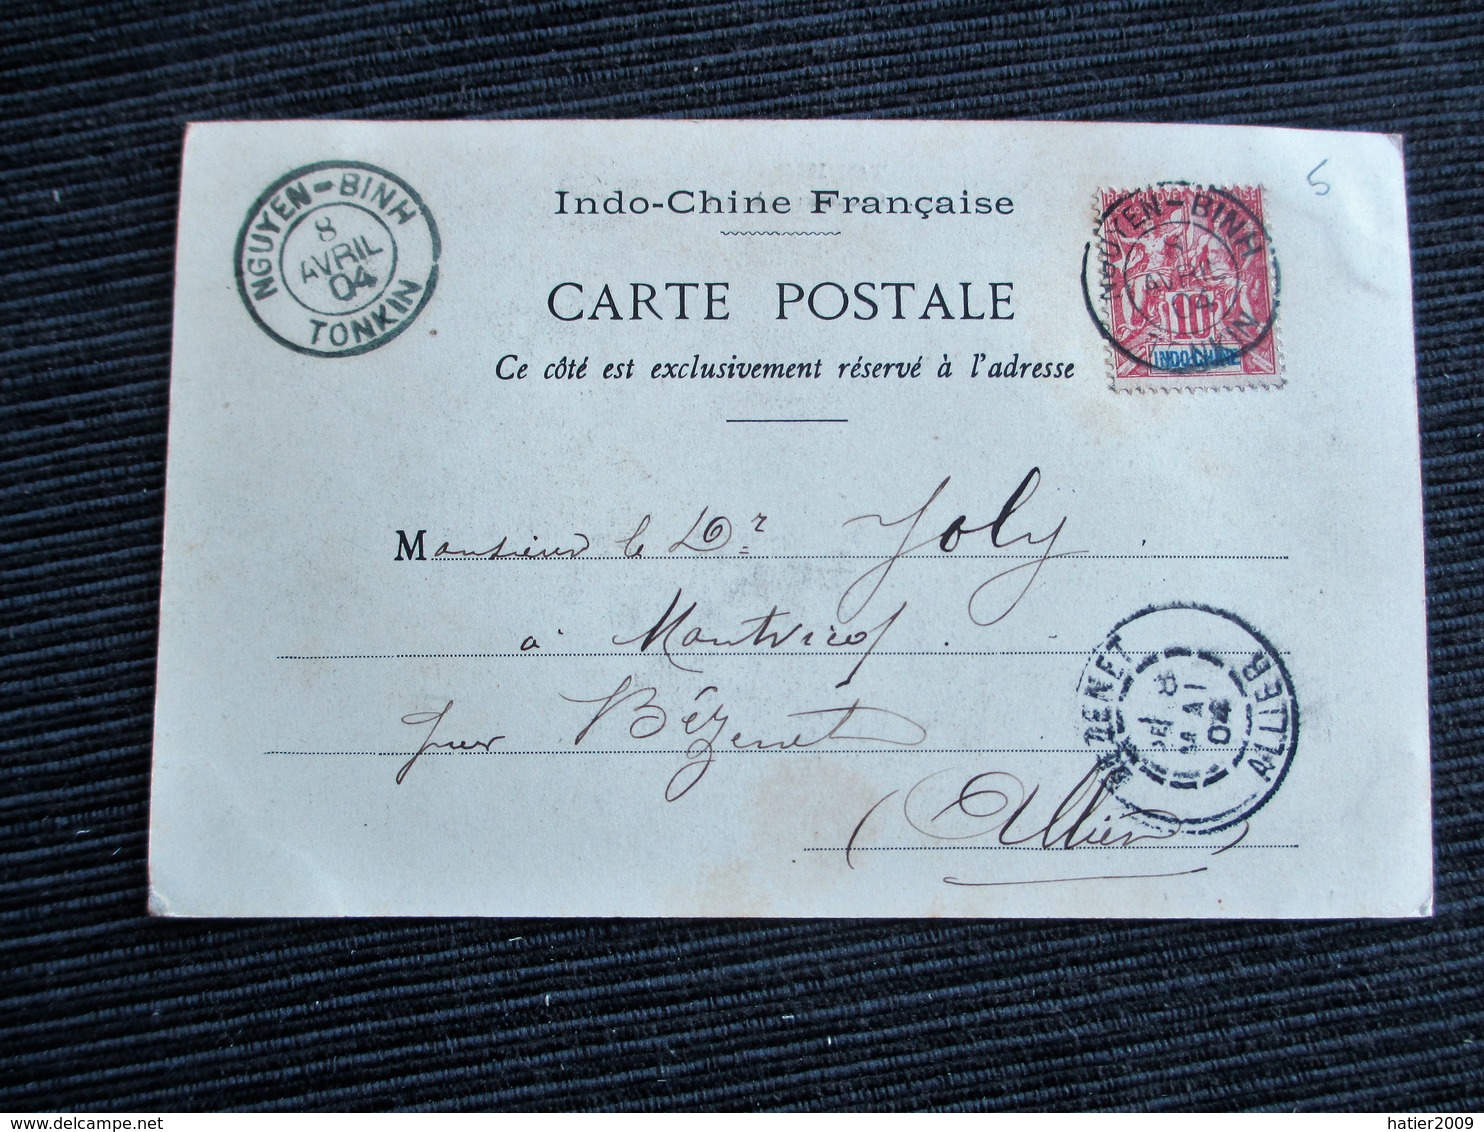 NGUYEN-BINH
8
AVRIL
04
TONKIN
Indo-Chine Française
CARTE POSTALE
Ce côté est exclusivement réservé à l'adresse
NGUYEN-BINH
AVRIL
04
10
INDO-CHINE
5
Monsieur le Dr Joly
à Montvicq
par Bézenet
(Allier)
8
MAI
04
ALLIER
hatier2009